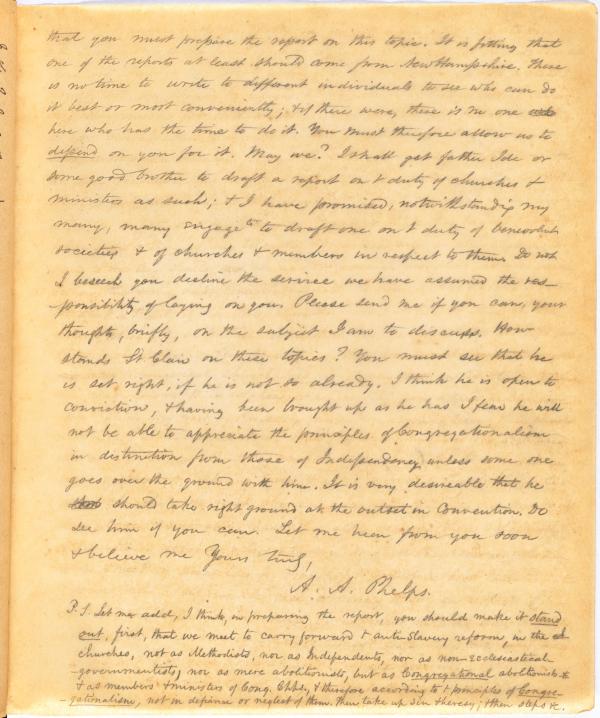 that you must prepare the report on this topic. It is fitting that
one of the reports at least should come from New Hampshire. There
is no time to write to different individuals to see who can do
it best or most conveniently; & if there were, there is no one
here who has the time to do it. You must therefore allow us to
depend on you for it. May we? I shall get father Ide or
some good brother to draft a report on t duty of churches &
ministers as such; & I have promised, notwithstanding my
many, many engagets to draft one on t duty of benevolent
societies & of churches & members in respect to them. Do not
I beseech you decline the service we have assumed the res-
-ponsibility of laying on you. Please send me if you can, your
thoughts, briefly, on the subject I am to discuss. How
stands St Clair on these topics? You must see that he
is set right, if he is not so already. I think he is open to
conviction, & having been brought up as he has I fear he will
not be able to appreciate the principles of Congregationalism
in distinction from those of Independency, unless some one
goes over the ground with him. It is very desireable that he
should take right ground at the outset in Convention. Do
see him if you can. Let me hear from you soon
& believe me Yours truly,
A. A. Phelps.
P.S. Let me add, I think, in preparing the report, you should make it stand
out, first, that we meet to carry forward t anti-slavery reform, in the
churches, not as Methodists, nor as Independents, nor as non-Ecclesiastical-
-governmentists; nor as mere abolitionists, but as Congregational abolitionists &
& as members & ministers of Cong. Chhs, & therefore according to t principles of Congre-
-gationalism, not in defiance or neglect of them. Then take up Sin theresy; & then steps &c.